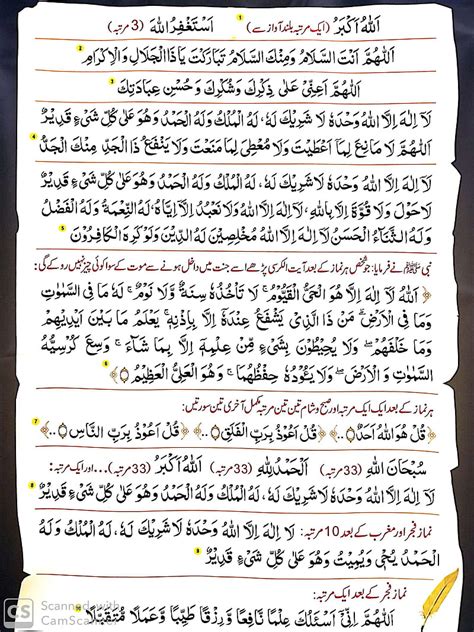 اَللّٰهُ اَكْبَرُ (ایک مرتبہ بلند آواز سے) 1 اَسْتَغْفِرُ اللّٰهَ (3 مرتبہ)
اَللّٰهُمَّ اَنْتَ السَّلَامُ وَمِنْكَ السَّلَامُ تَبَارَكْتَ يَا ذَا الْجَلَالِ وَالْاِكْرَامِ 2
اَللّٰهُمَّ اَعِنِّىْ عَلٰى ذِكْرِكَ وَشُكْرِكَ وَحُسْنِ عِبَادَتِكَ 3
لَآ اِلٰهَ اِلَّا اللّٰهُ وَحْدَهٗ لَا شَرِيْكَ لَهٗ، لَهُ الْمُلْكُ وَلَهُ الْحَمْدُ وَهُوَ عَلٰى كُلِّ شَىْءٍ قَدِيْرٌ
اَللّٰهُمَّ لَا مَانِعَ لِمَآ اَعْطَيْتَ وَلَا مُعْطِىَ لِمَا مَنَعْتَ وَلَا يَنْفَعُ ذَا الْجَدِّ مِنْكَ الْجَدُّ 4
لَا اِلٰهَ اِلَّا اللّٰهُ وَحْدَهٗ لَا شَرِيْكَ لَهٗ، لَهُ الْمُلْكُ وَلَهُ الْحَمْدُ وَهُوَ عَلٰى كُلِّ شَىْءٍ قَدِيْرٌ
لَا حَوْلَ وَلَا قُوَّةَ اِلَّا بِاللّٰهِ، لَا اِلٰهَ اِلَّا اللّٰهُ وَلَا نَعْبُدُ اِلَّآ اِيَّاهُ، لَهُ النِّعْمَةُ وَلَهُ الْفَضْلُ
وَلَهُ الثَّنَآءُ الْحَسَنُ لَآ اِلٰهَ اِلَّا اللّٰهُ مُخْلِصِيْنَ لَهُ الدِّيْنَ وَلَوْ كَرِهَ الْكَافِرُوْنَ 5
نبی ﷺ نے فرمایا: جو شخص ہر نماز کے بعد آیت الکرسی پڑھے اسے جنت میں داخل ہونے سے موت کے سوا کوئی چیز نہیں روکے گی:
﴿ اَللّٰهُ لَآ اِلٰهَ اِلَّا هُوَ الْحَىُّ الْقَيُّوْمُ ۚ لَا تَاْخُذُهٗ سِنَةٌ وَّلَا نَوْمٌ ؕ لَهٗ مَا فِى السَّمٰوٰتِ
وَمَا فِى الْاَرْضِ ؕ مَنْ ذَا الَّذِىْ يَشْفَعُ عِنْدَهٗٓ اِلَّا بِاِذْنِهٖ ؕ يَعْلَمُ مَا بَيْنَ اَيْدِيْهِمْ
وَمَا خَلْفَهُمْ ۚ وَلَا يُحِيْطُوْنَ بِشَىْءٍ مِّنْ عِلْمِهٖٓ اِلَّا بِمَا شَآءَ ۚ وَسِعَ كُرْسِيُّهُ
السَّمٰوٰتِ وَالْاَرْضَ ۚ وَلَا يَـُٔوْدُهٗ حِفْظُهُمَا ۚ وَهُوَ الْعَلِىُّ الْعَظِيْمُ ﴾ 6
ہر نماز کے بعد ایک ایک مرتبہ اور صبح و شام تین تین مرتبہ مکمل آخری تین سورتیں:
﴿ قُلْ هُوَ اللّٰهُ اَحَدٌ ..﴾ ﴿ قُلْ اَعُوْذُ بِرَبِّ الْفَلَقِ ..﴾ ﴿ قُلْ اَعُوْذُ بِرَبِّ النَّاسِ ..﴾ 7
سُبْحَانَ اللّٰهِ (33 مرتبہ) اَلْحَمْدُ لِلّٰهِ (33 مرتبہ) اَللّٰهُ اَكْبَرُ (33 مرتبہ)... اور ایک مرتبہ:
لَا اِلٰهَ اِلَّا اللّٰهُ وَحْدَهٗ لَا شَرِيْكَ لَهٗ، لَهُ الْمُلْكُ وَلَهُ الْحَمْدُ وَهُوَ عَلٰى كُلِّ شَىْءٍ قَدِيْرٌ 8
نماز فجر اور مغرب کے بعد 10 مرتبہ: لَا اِلٰهَ اِلَّا اللّٰهُ وَحْدَهٗ لَا شَرِيْكَ لَهٗ، لَهُ الْمُلْكُ وَلَهُ
الْحَمْدُ يُحْيِىْ وَيُمِيْتُ وَهُوَ عَلٰى كُلِّ شَىْءٍ قَدِيْرٌ
نماز فجر کے بعد ایک مرتبہ:
اَللّٰهُمَّ اِنِّىْٓ اَسْئَلُكَ عِلْمًا نَّافِعًا وَّرِزْقًا طَيِّبًا وَّعَمَلًا مُّتَقَبَّلًا
CS Scanned with
CamScanner